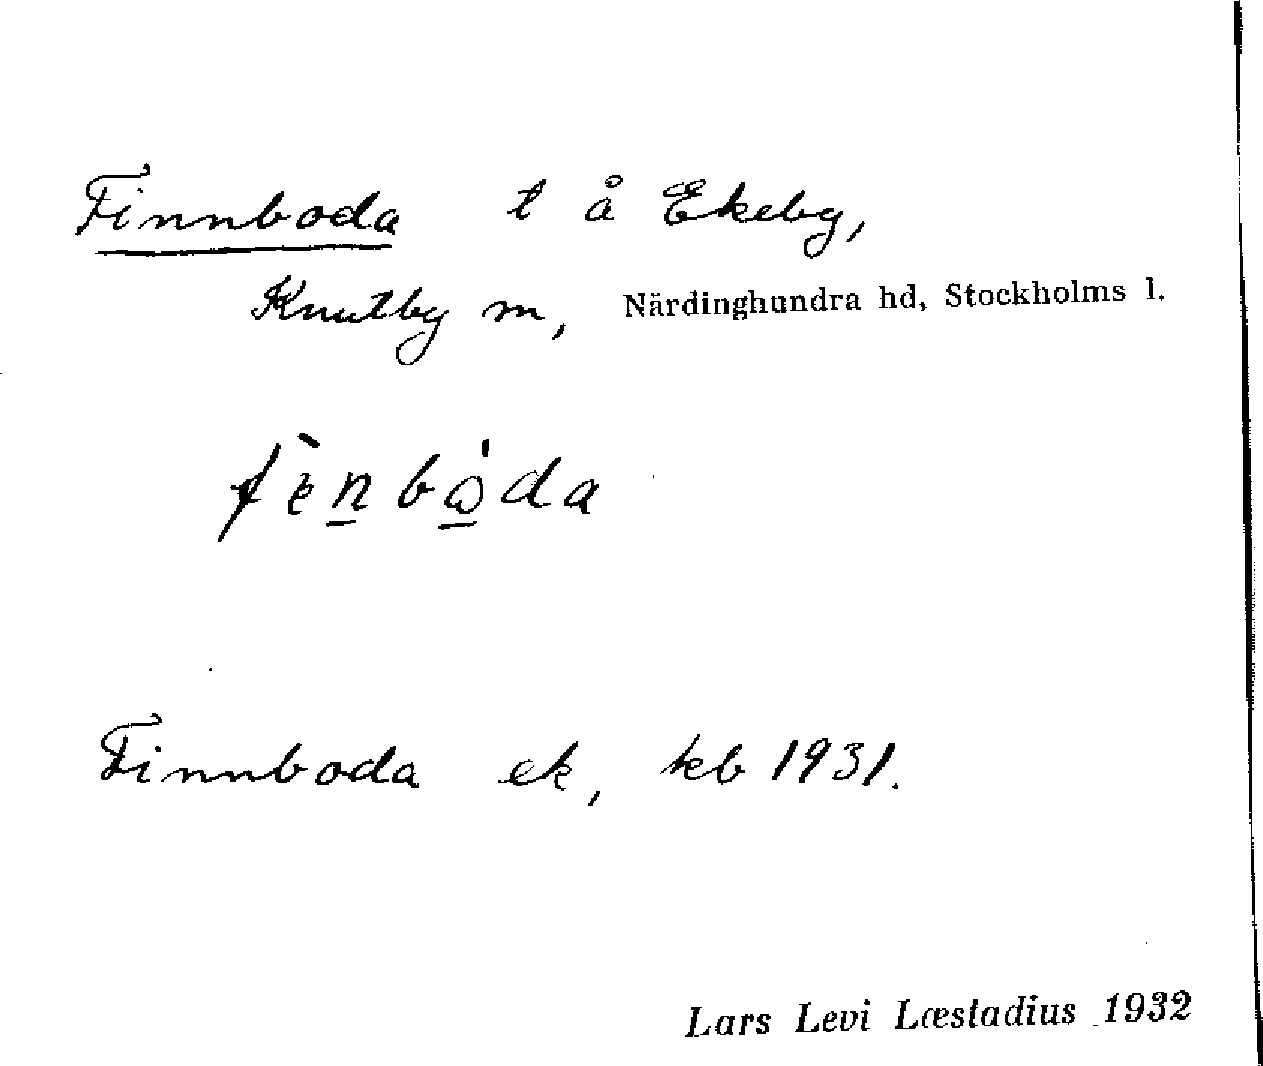 Finnboda t å Ekeby,
Knutby sn, Närdinghundra hd, Stockholms l.
Finnboda ek, kb 1931.
Lars Levi Læstadius 1932